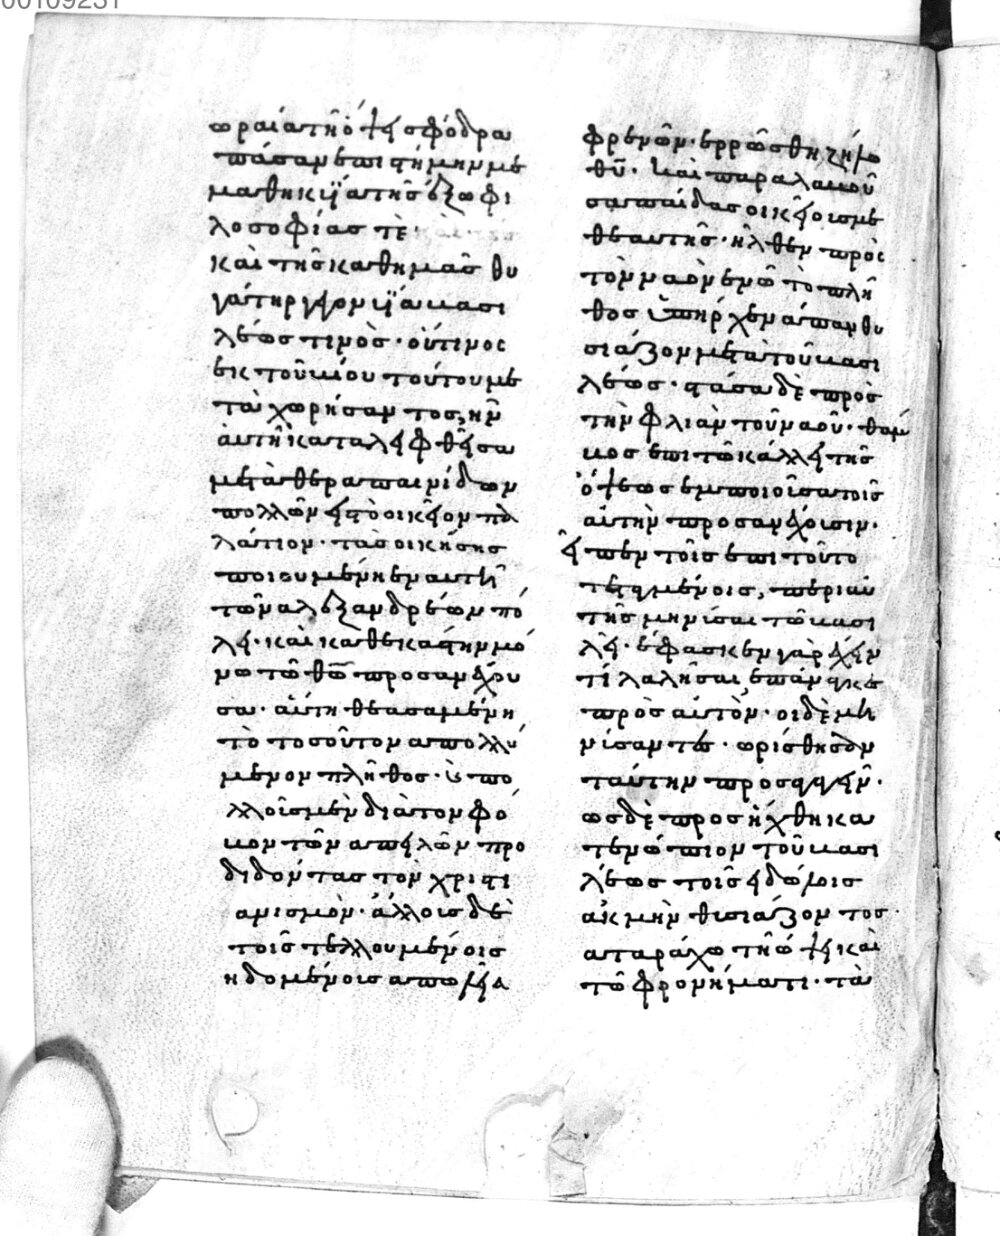 00109231
ωραία τῆ ὄψει σφόδρα
πάσαν ἐπιστήμην με
μαθηκυῖα τῆς ἔξω φι
λοσοφίας τὲ
καὶ τῆς καθημᾶς θυ
γάτηρ γεγονυῖα βασι
λέως τινὸς· οὗτινος
ἐκ τοῦ βίου τούτου με
ταχωρήσαντος, ἦν
αὐτὴ καταλειφθεῖσα
μετὰ θεραπαινίδων
πολλῶν εἰς τὸ οἰκεῖον πα
λάτιον· τὰς οἰκήσης
ποιουμένη ἐν αὐτῆ
τῶν ἀλεξανδρέων πό
λει· καὶ καθεκάστην μό
νω τῶ θῶ προσανέχου
σα· αὕτη θεασαμένη
τὸ τοσοῦτον ἀπολλύ
μενον πλῆθος· ὑπὸ
λλοῖς μὲν διὰ τὸν φό
βον τῶν ἀπειλῶν προ
διδόντας τὸν χριστι
ανισμὸν· ἄλλοις δὲ
τοῖς τελλουμένοις
ἡδομένοις ἀπωλεία
φρενῶν· ἐρρώσθη ζήλω
θῦ· καὶ παραλαβοῦ
σα παίδας οἰκείοις με
θεαυτῆς· ἦλθεν πρὸς
τὸν ναὸν ἐν ῶ τὸ πλῆ
θος ὑπῆρχεν ἅπαν θυ
σιάζον μετὰ τοῦ βασι
λέως· στάσα δὲ πρὸς
τὴν φλιὰν τοῦ ναοῦ· θάμ
βος ἐπὶ τῶ κάλλει τῆς
ὄψεως ἐμποιοῦσα τοῖς
αὐτὴν προσανέχουσιν·
εἶπεν τοῖς ἐπὶ τοῦτο
τεταγμένοις, περὶ αὐ
τῆς μηνῦσαι τῶ βασι
λεῖ· ἔφασκεν γὰρ ἔχειν
τί λαλῆσαι ἐπάναγκες
πρὸς αὐτὸν· οἱ δὲ μη
νύσαντες· ὡρίσθησαν
ταύτην προσαγαγεῖν·
ὡς δὲ προσήχθη κα
τενώπιον τοῦ βασι
λέως τοῖς εἰδώλοις
ἀκμὴν θυσιάζοντος·
ἀταράχω τῆ ὄψει καὶ
τῶ φρονήματι· τὰ